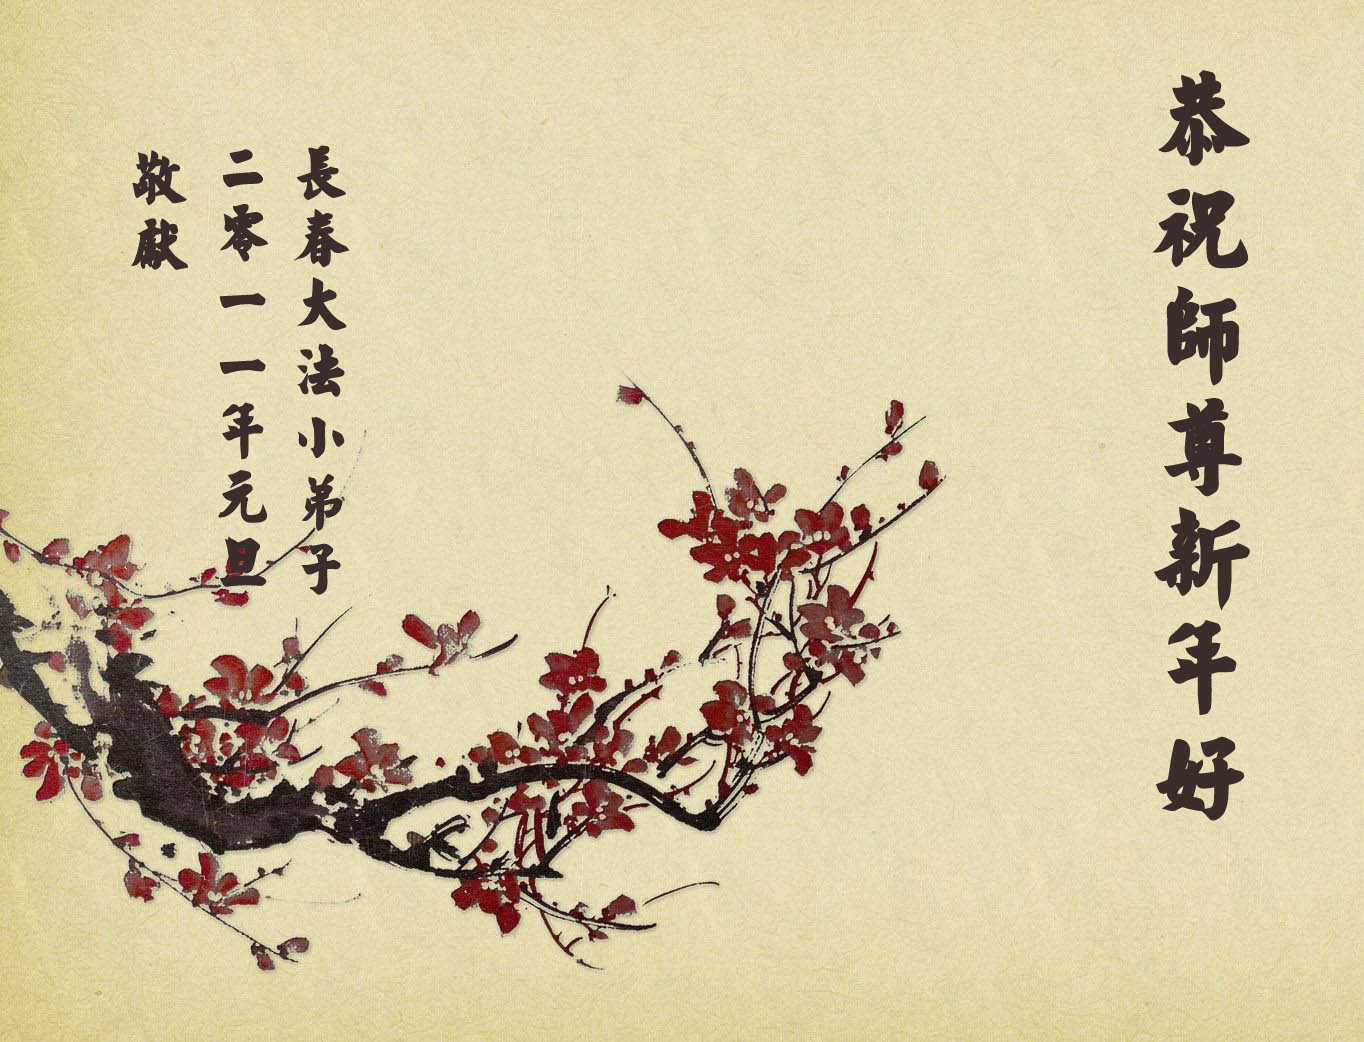 恭祝師尊新年好
長春大法小弟子
二零一一年元旦
敬獻